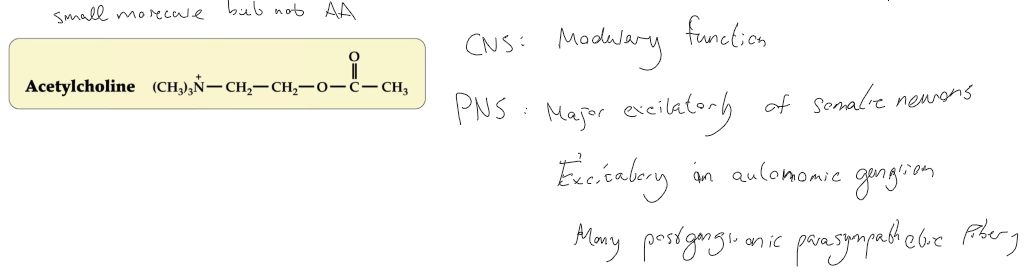 small molecule but not AA
Acetylcholine (CH₃)₃N⁺—CH₂—CH₂—O—C—CH₃
O
CNS: Modulary function
PNS: Major excitatory of somatic neurons
Excitatory in autonomic ganglion
Many postganglionic parasympathetic fibers